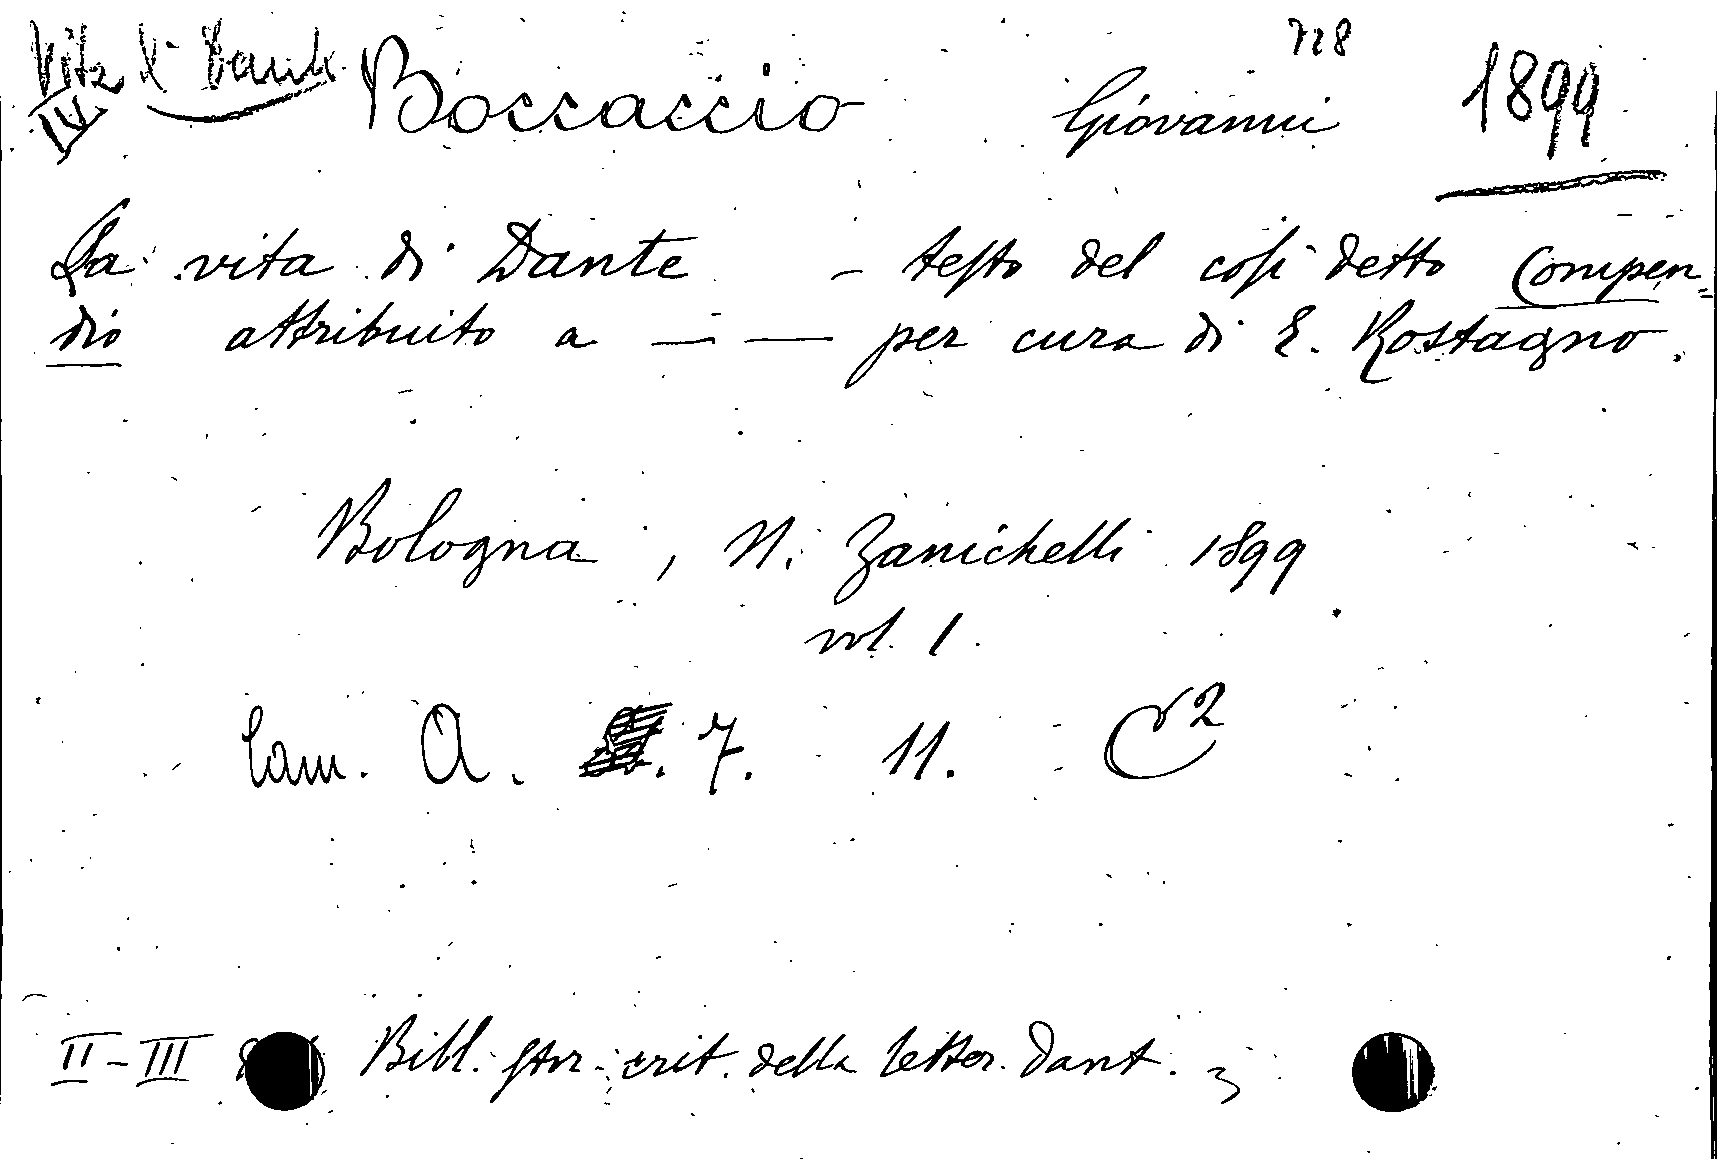 Vita di Dante Boccaccio Giovanni 728 1899
IV
La vita di Dante – testo del così detto Compen=
dio attribuito a — — per cura di E. Rostagno.
Bologna, N. Zanichelli 1899
vol. 1.
Cam. A. 7. 11. C 2
II-III Bibl. stor. crit. della letter. Dant.